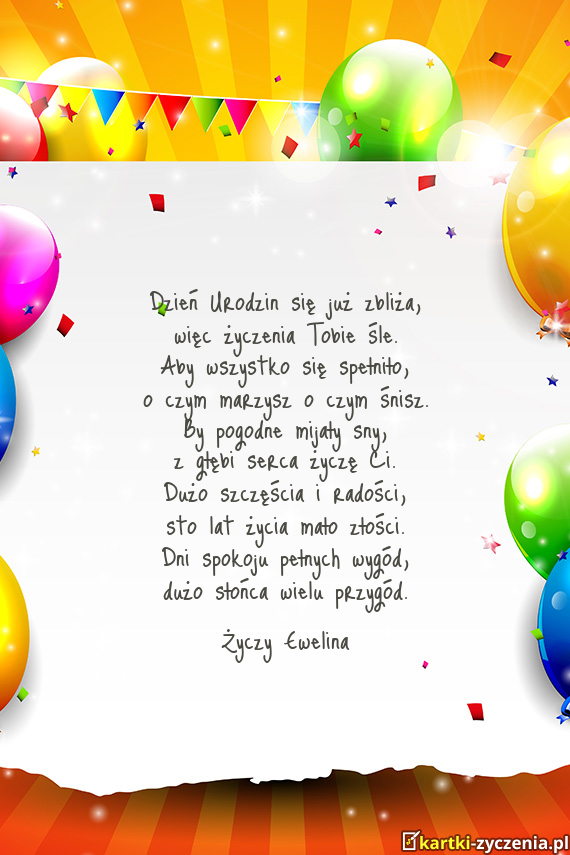 Dzień Urodzin się już zbliża,
więc życzenia Tobie śle.
Aby wszystko się spełniło,
o czym marzysz o czym śnisz.
By pogodne mijały sny,
z głębi serca życzę Ci.
Dużo szczęścia i radości,
sto lat życia mało złości.
Dni spokoju pełnych wygód,
dużo słońca wielu przygód.
Życzy Ewelina
kartki-zyczenia.pl